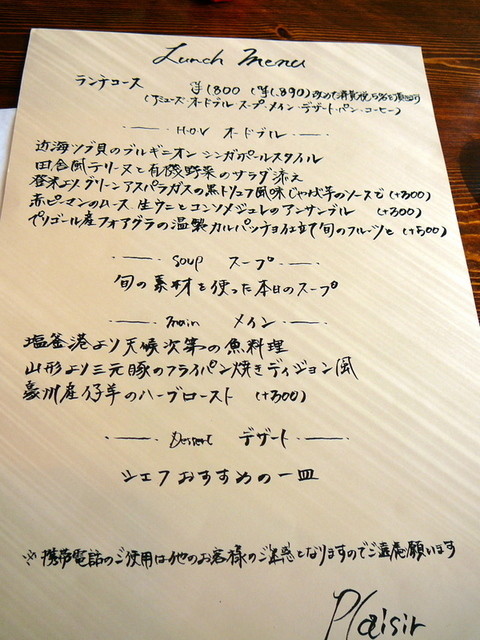 Lunch Menu
ランチコース ¥1,800 (¥1,890) 消費税5%を頂きます
(ジュース・オードブル スープ・メイン・デザート・パン・コーヒー)
H.O.V オードブル
近海ツブ貝のブルギニオン シンガポールスタイル
田舎風テリーヌと有機野菜のサラダ添え
登米よりグリーンアスパラガスの黒トリュフ風味じゃが芋のソースで (+300)
赤ピーマンのムース 生ウニとコンソメジュレのアンサンブル (+300)
ペリゴール産フォアグラの温製カルパッチョ仕立て旬のフルーツと (+500)
Soup スープ
旬の素材を使った本日のスープ
main メイン
塩釜港より天候次第の魚料理
山形より三元豚のフライパン焼きディジョン風
豪州産仔羊のハーブロースト (+300)
Dessert デザート
シェフおすすめの一皿
※携帯電話のご使用は他のお客様のご迷惑となりますのでご遠慮願います
Plaisir